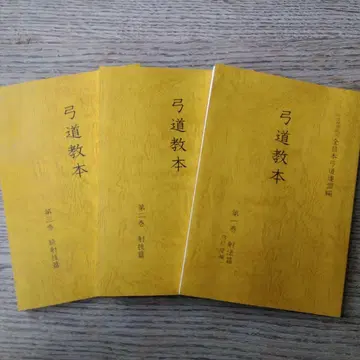 弓道教本
第三巻 続射技篇
弓道教本
第二巻 射技篇
全日本弓道連盟編
弓道教本
第一巻 射法篇